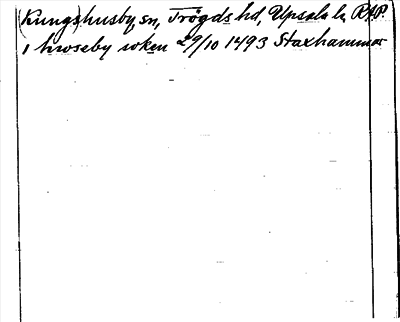 (Kungs)husby sn, Trögds hd, Upsala l. RAP.
i hwseby soken 29/10 1493 Staxhammar